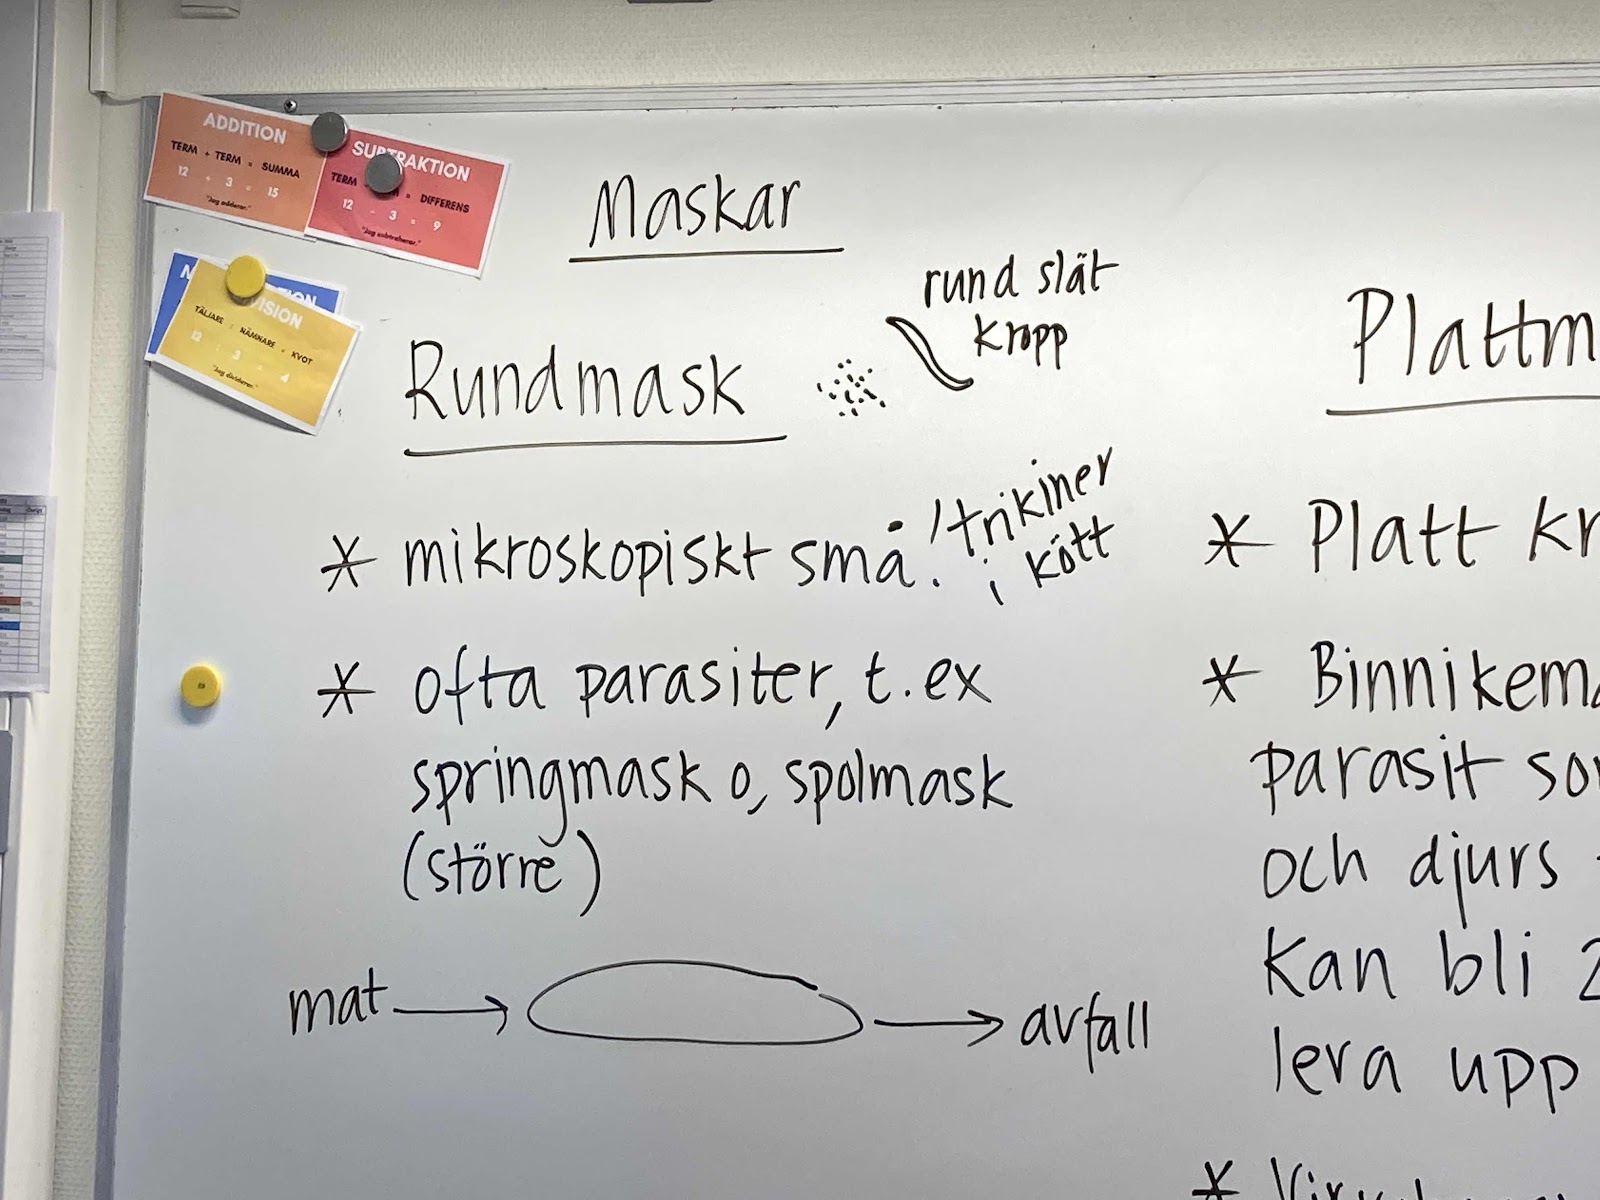 ADDITION
TERM + TERM = SUMMA
12 + 3 = 15
"Jag adderar."
SUBTRAKTION
TERM = DIFFERENS
12 - 3 = 9
"Jag subtraherar."
DIVISION
TÄLJARE : NÄMNARE = KVOT
12 : 3 = 4
"Jag dividerar."
Maskar
rund slät
kropp
Rundmask
* mikroskopiskt små! / trikiner
i kött
* ofta parasiter, t.ex
springmask o, spolmask
(större)
mat → → avfall
Plattm
* Platt kr
* Binnikema
parasit so
och djurs
kan bli 2
leva upp